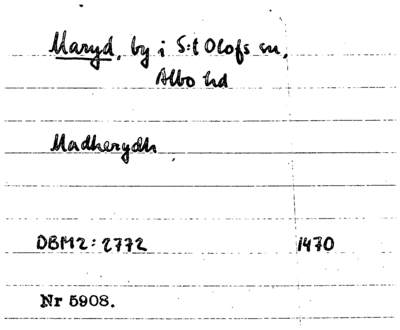 Maryd, by i S:t Olofs sn,
Albo hd
Madherydh
DBM2:2772 1470
Nr 5908.